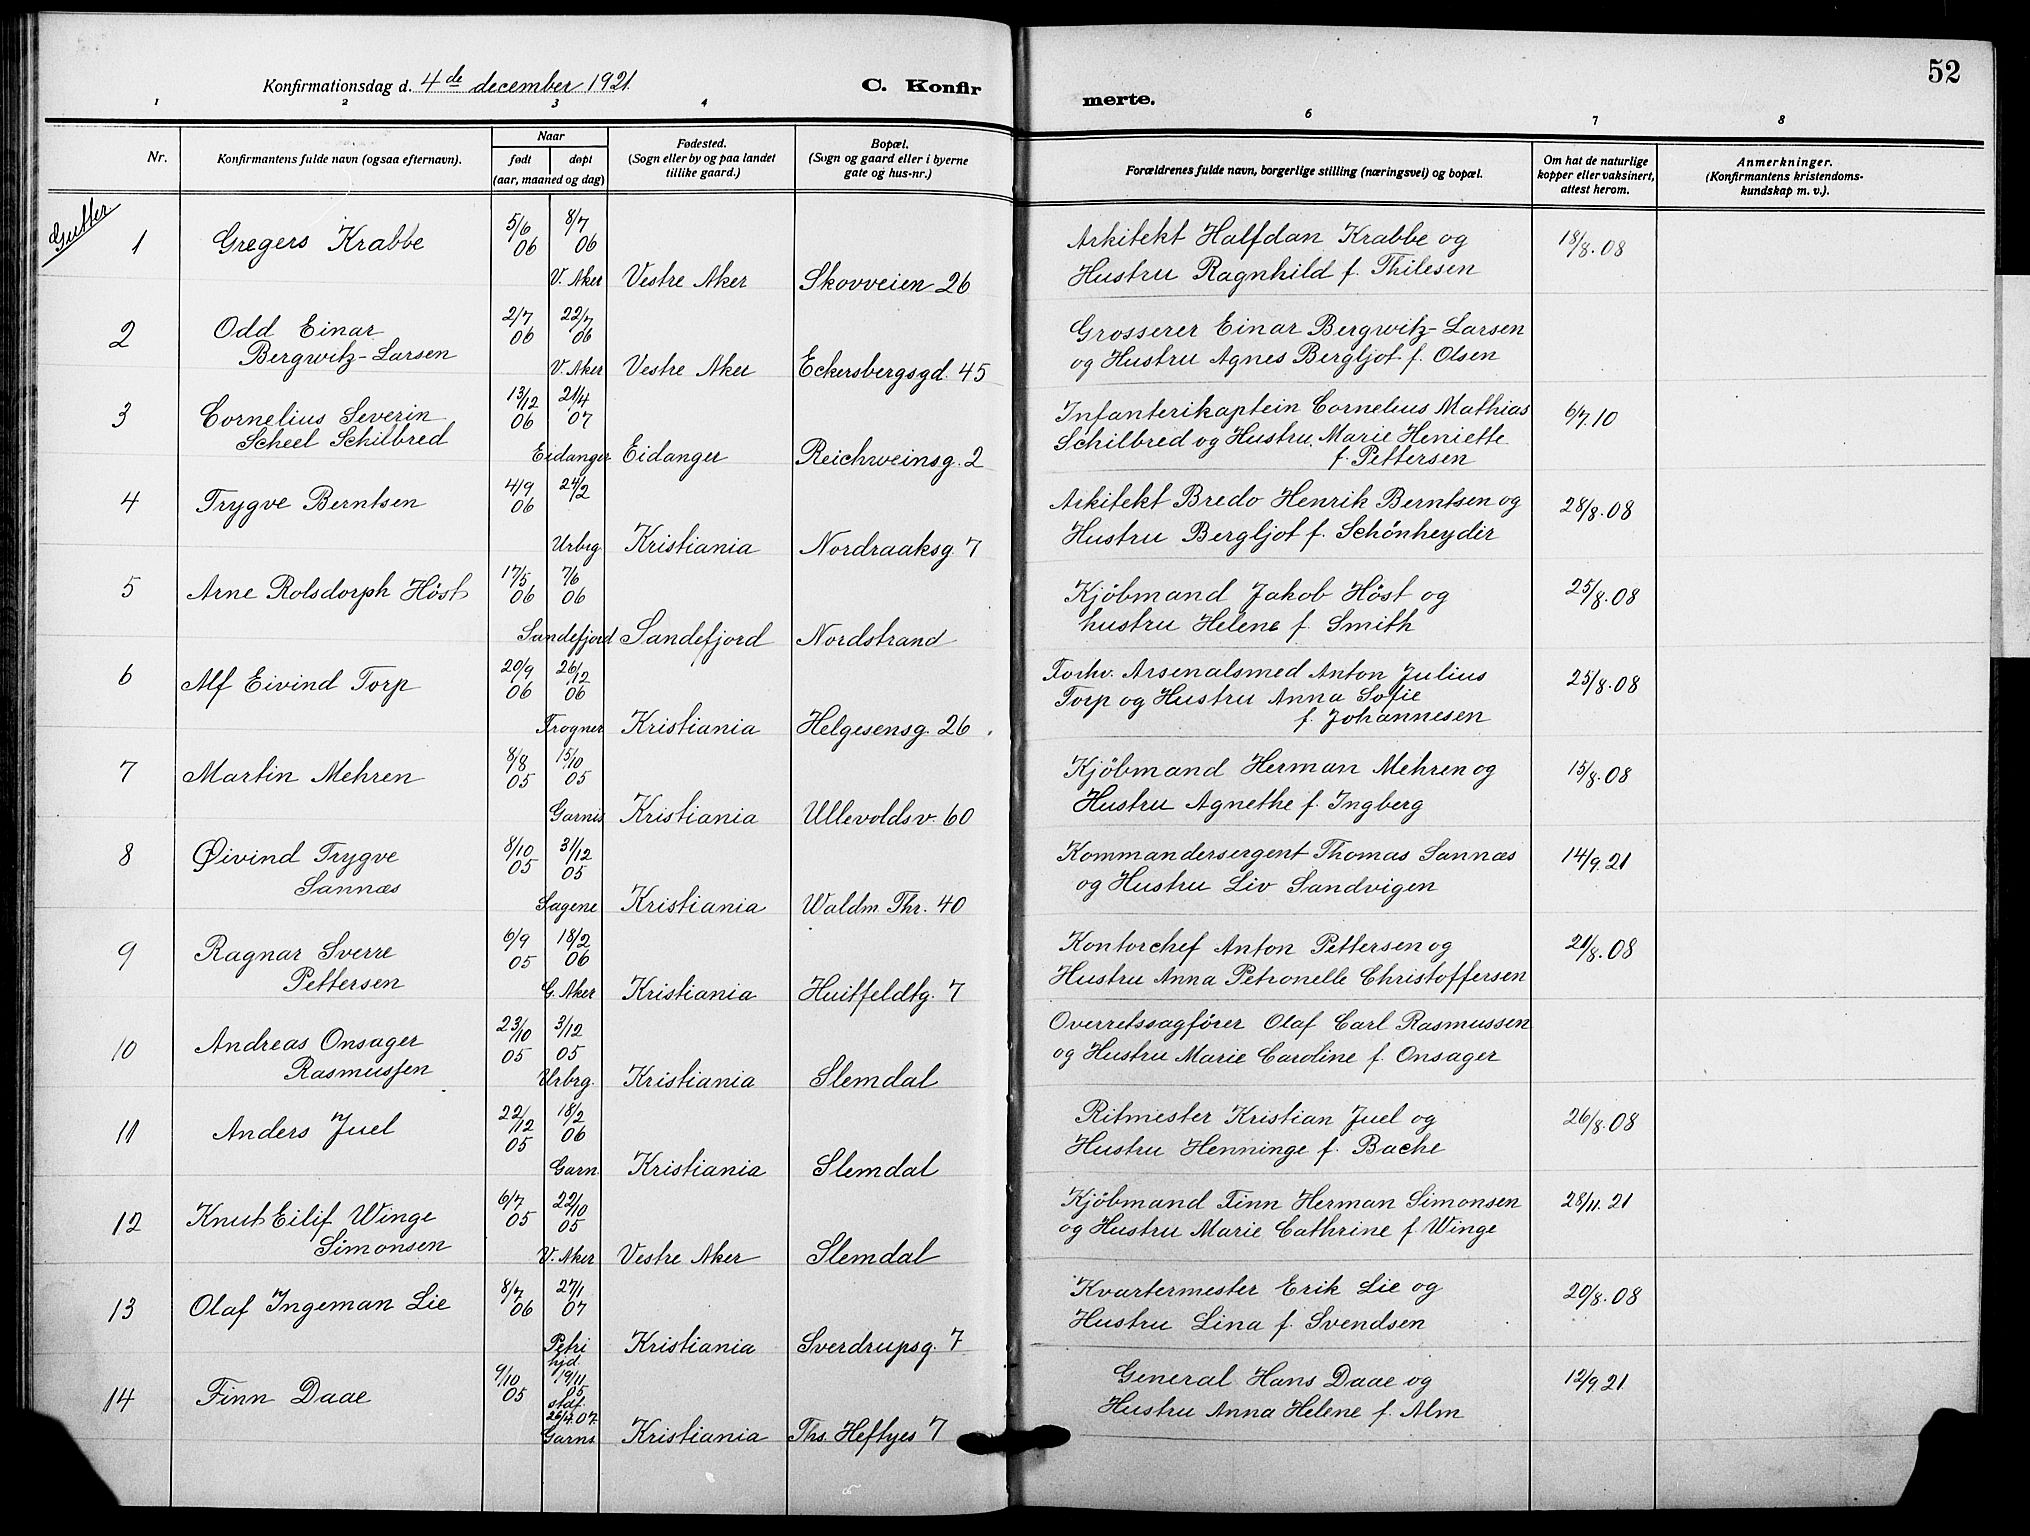 52
Konfirmationsdag d. 4de december 1921.
C. Konfirmerte.
1 2 3 4 6 7 8
Nr.
Konfirmantens fulde navn (ogsaa efternavn).
Naar
født
døpt
(aar, maaned og dag)
Fødested.
(Sogn eller by og paa landet
tillike gaard.)
Bopæl.
(Sogn og gaard eller i byerne
gate og hus-nr.)
Forældrenes fulde navn, borgerlige stilling (næringsvei) og bopæl.
Om hat de naturlige
kopper eller vaksinert,
attest herom.
Anmerkninger.
(Konfirmantens kristendoms-
kundskap m. v.).
Gutter
1 Gregers Krabbe 5/6 06 8/7 06 Arkitekt Halfdan Krabbe og 18/8.08
V. Aker Vestre Aker Skovveien 26 Hustru Ragnhild f. Thilesen
2 Odd Einar 2/7 06 22/7 06 Grosserer Einar Bergwitz-Larsen
Bergwitz-Larsen V. Aker Vestre Aker Eckersbergsgd. 45 og Hustru Agnes Bergljot f. Olsen
3 Cornelius Severin 13/12 06 21/4 07 Infanterikaptein Cornelius Mathias 6/7.10
Scheel Schilbred Schilbred og Hustru Marie Heniette
Eidanger Eidanger Reichweinsg. 2 f. Pettersen
4 Trygve Berntsen 4/9 06 24/2 Arkitekt Bredo Henrik Berntsen og 28/8.08
Urbrg. Kristiania Nordraaksg. 7 Hustru Bergljot f. Schönheyder
5 Arne Rolsdorph Höst 17/5 06 7/6 06 Kjöbmand Jakob Höst og 25/8.08
Sandefjord Sandefjord Nordstrand hustru Helene f. Smith
6 Alf Eivind Torp 20/9 06 26/12 06 Forhv. Arsenalsmed Anton Julius 25/8.08
Torp og Hustru Anna Sofie
Frogner Kristiania Helgesensg. 26 f. Johannesen
7 Martin Mehren 8/8 05 15/10 05 Kjöbmand Herman Mehren og 15/8.08
Garnis Kristiania Ullevoldsv. 60 Hustru Agnethe f. Ingberg
8 Øivind Trygve 8/10 05 31/12 05 Kommandersergent Thomas Sannæs 14/9.21
Sannæs Sagene Kristiania Waldm. Thr. 40 og Hustru Liv Sandvigen
9 Ragnar Sverre 6/9 05 18/2 06 Kontorchef Anton Pettersen og 21/8.08
Pettersen G. Aker Kristiania Huitfeldtg. 7 Hustru Anna Petronelle Christoffersen
10 Andreas Onsager 23/10 05 3/12 05 Overretssagförer Olaf Carl Rasmussen
Rasmussen Urbrg. Kristiania Slemdal og Hustru Marie Caroline f. Onsager
11 Anders Juel 22/12 05 18/2 06 Ritmester Kristian Juel og 26/8.08
Garn Kristiania Slemdal Hustru Henninge f. Bache
12 Knut Eilif Winge 6/7 05 22/10 05 Kjöbmand Finn Herman Simonsen 28/11.21
Simonsen V. Aker Vestre Aker Slemdal og Hustru Marie Cathrine f. Winge
13 Olaf Ingeman Lie 8/7 06 27/1 07 Kvartermester Erik Lie og 20/8.08
Petri Kristiania Sverdrupsg. 7 Hustru Lina f. Svendsen
14 Finn Daae 9/10 05 hjd. 19/11 05 General Hans Daae og 12/9.21
stdf. 26/4.07 Hustru Anna Helene f. Alm
Garns. Kristiania Ths. Heftyes 7